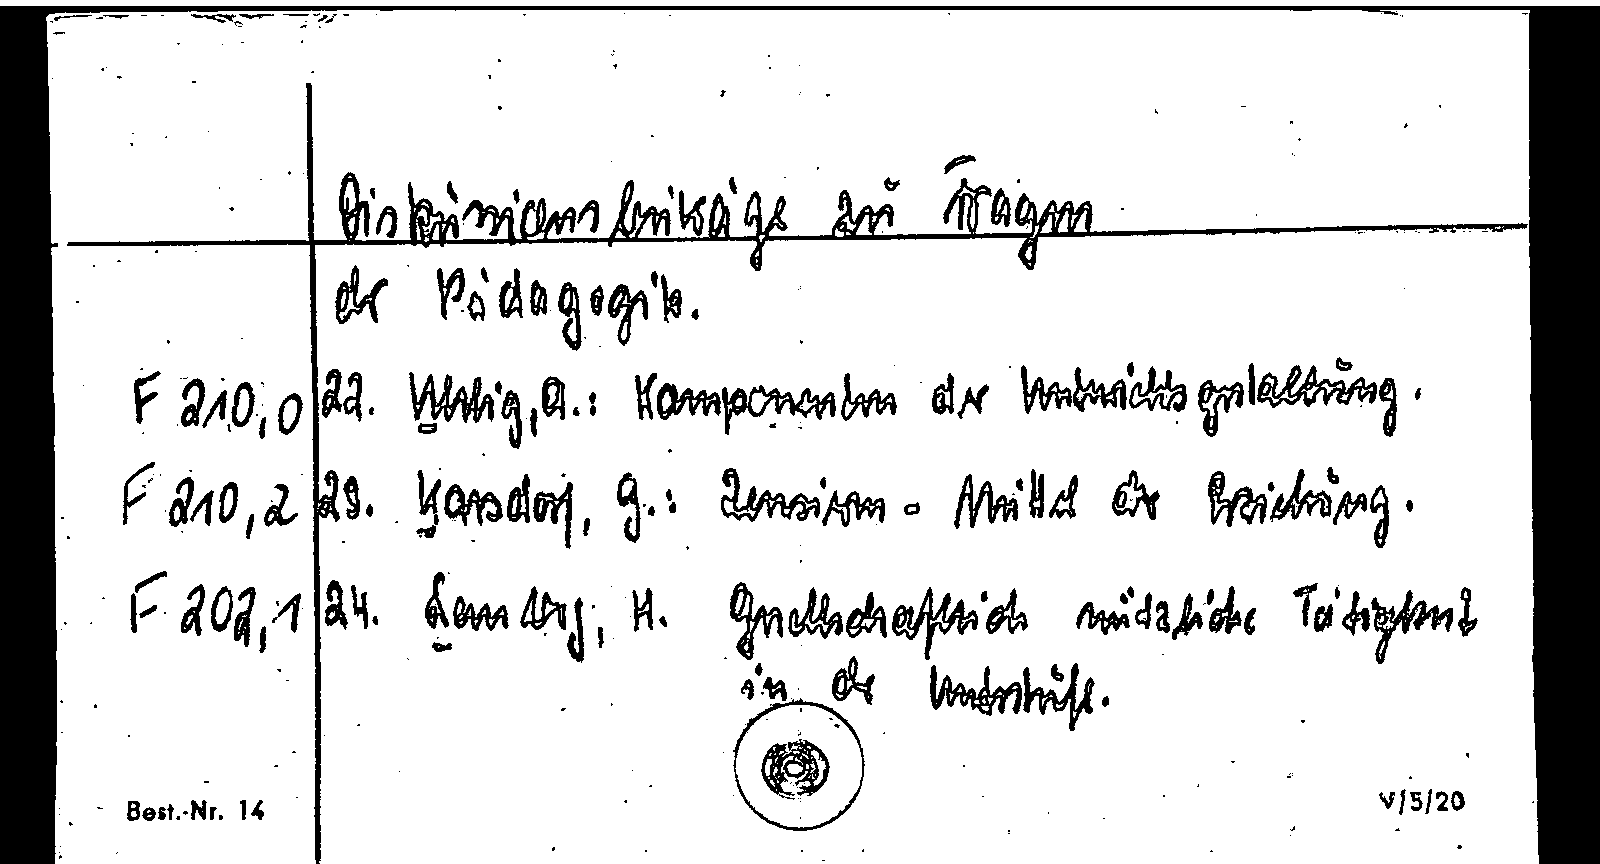 Diskussionsbeiträge zu Fragen
der Pädagogik.
F 210,0 22. Uhlig, A.: Komponenten der Unterrichtsgestaltung.
F 210,2 23. Karsdorf, G.: Zensieren - Mittel der Erziehung.
F 202,1 24. Lemberg, H. Gesellschaftlich nützliche Tätigkeit
in der Unterstufe.
Best.-Nr. 14 V/5/20